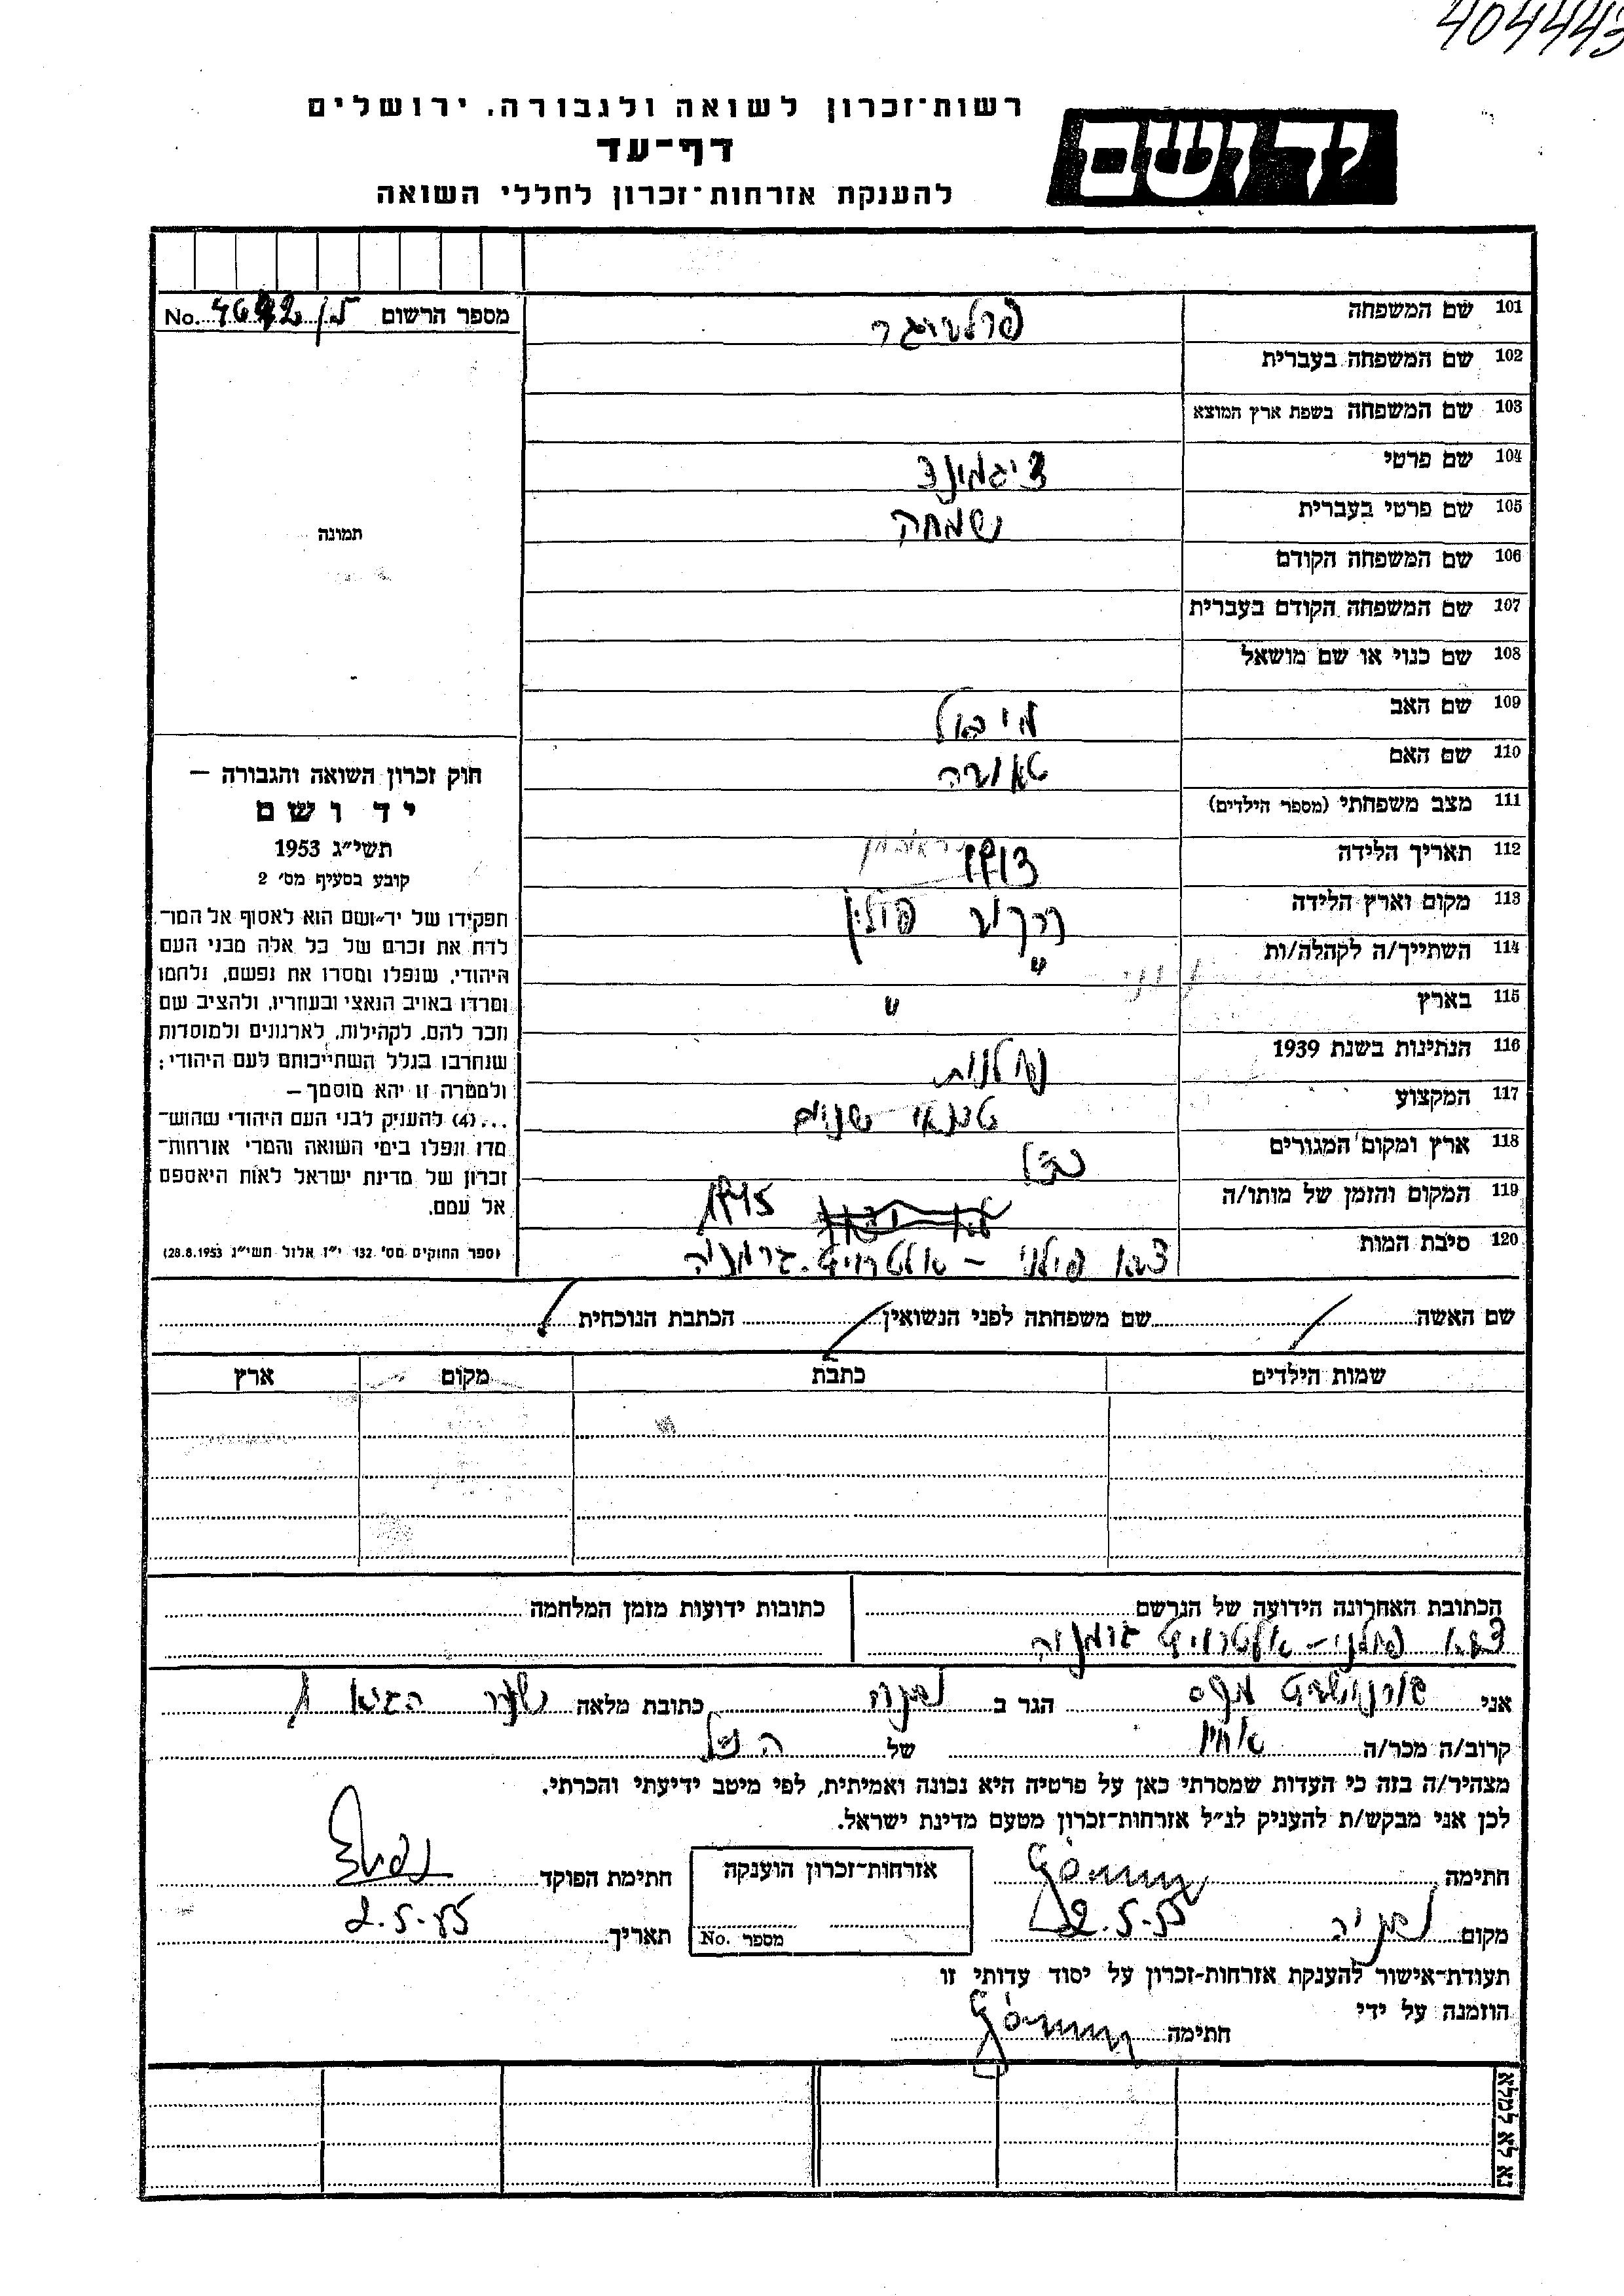 404443
רשות־זכרון לשואה ולגבורה. ירושלים
יד ושם
דף־עד
להענקת אזרחות־זכרון לחללי השואה
מספר הרשום No.
101 שם המשפחה
102 שם המשפחה בעברית
103 שם המשפחה בשפת ארץ המוצא
104 שם פרטי זיגמונד
105 שם פרטי בעברית שמחה
תמונה
106 שם המשפחה הקודם
107 שם המשפחה הקודם בעברית
108 שם כנוי או שם מושאל
109 שם האב
110 שם האם
111 מצב משפחתי (מספר הילדים)
112 תאריך הלידה 1913
113 מקום וארץ הלידה פולין
114 השתייך/ה לקהלה/ות "
115 בארץ "
116 הנתינות בשנת 1939 פולנית
117 המקצוע טכנאי שינים
118 ארץ ומקום המגורים כנ"ל
119 המקום והזמן של מותו/ה 1945
120 סיבת המות צבא פולני – גרמניה
חוק זכרון השואה והגבורה —
יד ושם
תשי״ג 1953
קובע בסעיף מס׳ 2
תפקידו של יד־ושם הוא לאסוף אל המו־
לדת את זכרם של כל אלה מבני העם
היהודי, שנפלו ומסרו את נפשם, נלחמו
ומרדו באויב הנאצי ובעוזריו, ולהציב שם
וזכר להם, לקהילות, לארגונים ולמוסדות
שנחרבו בגלל השתייכותם לעם היהודי;
ולמטרה זו יהא מוסמך —
...(4) להעניק לבני העם היהודי שהוש־
מדו ונפלו בימי השואה והמרי אזרחות־
זכרון של מדינת ישראל לאות היאספם
אל עמם.
(ספר החוקים מס׳ 132 י״ז אלול תשי״ג 28.8.1953)
שם האשה שם משפחתה לפני הנשואין הכתבת הנוכחית
שמות הילדים כתבת מקום ארץ
הכתובת האחרונה הידועה של הנרשם כתובות ידועות מזמן המלחמה
צבא פולני – גרמניה
אני הגר ב נתניה כתובת מלאה שער הגיא
קרוב/ה מכר/ה אחיו של הנ"ל
מצהיר/ה בזה כי העדות שמסרתי כאן על פרטיה היא נכונה ואמיתית, לפי מיטב ידיעתי והכרתי.
לכן אני מבקש/ת להעניק לנ״ל אזרחות־זכרון מטעם מדינת ישראל.
חתימה אזרחות־זכרון הוענקה חתימת הפוקד
מקום נתניה 2.5.55 מספר No. תאריך 2.5.55
תעודת־אישור להענקת אזרחות־זכרון על יסוד עדותי זו
הוזמנה על ידי
חתימה
נא לא למלא